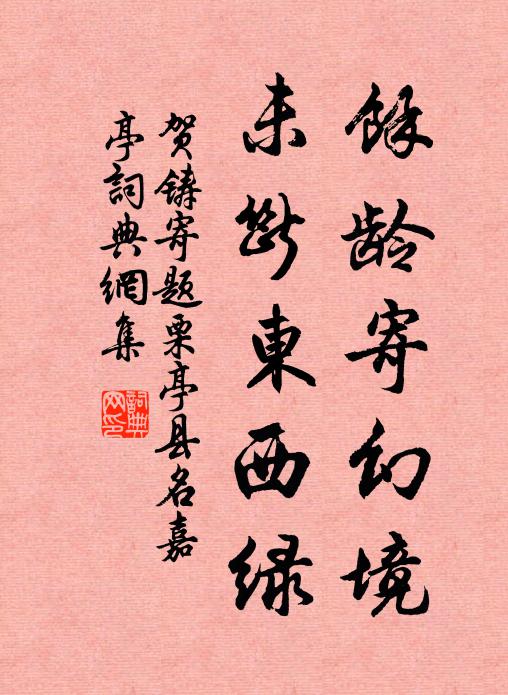 馀龄寄幻境
未断東西缘
贺铸寄题栗亭县名嘉
亭詞典網集
詞典
网印